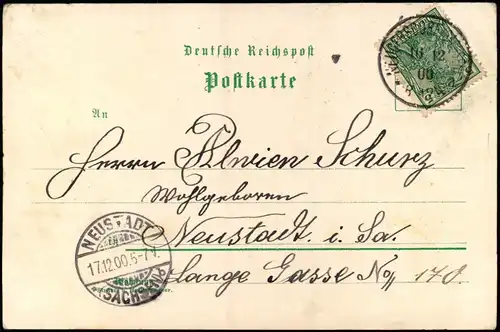 Deutsche Reichspost
Postkarte
16 12
00
An
Herrn Alwien Schurz
Wohlgeboren
Neustadt i. Sa.
lange Gasse No 170.
NEUSTADT
17.12.00.5-7N.
SACHSEN